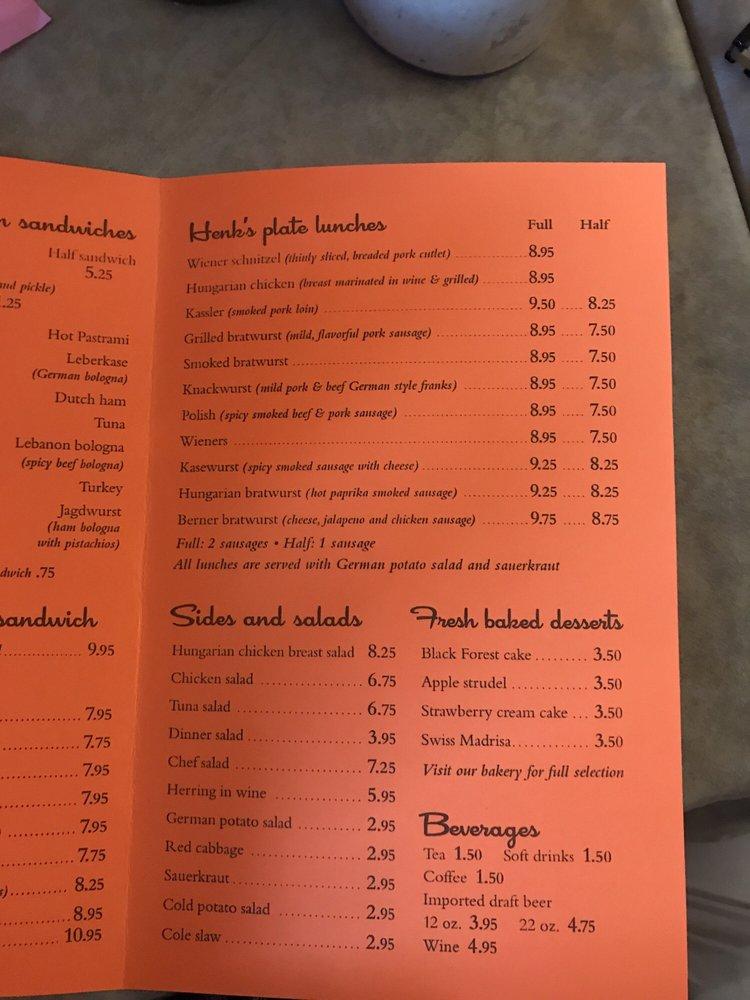 sandwiches
Half sandwich
5.25
and pickle)
.25
Hot Pastrami
Leberkase
(German bologna)
Dutch ham
Tuna
Lebanon bologna
(spicy beef bologna)
Turkey
Jagdwurst
(ham bologna
with pistachios)
.75
sandwich
9.95
7.95
7.75
7.95
7.95
7.95
7.75
8.25
8.95
10.95
Henk's plate lunches Full Half
Wiener schnitzel (thinly sliced, breaded pork cutlet) 8.95
Hungarian chicken (breast marinated in wine & grilled) 8.95
Kassler (smoked pork loin) 9.50 8.25
Grilled bratwurst (mild, flavorful pork sausage) 8.95 7.50
Smoked bratwurst 8.95 7.50
Knackwurst (mild pork & beef German style franks) 8.95 7.50
Polish (spicy smoked beef & pork sausage) 8.95 7.50
Wieners 8.95 7.50
Kasewurst (spicy smoked sausage with cheese) 9.25 8.25
Hungarian bratwurst (hot paprika smoked sausage) 9.25 8.25
Berner bratwurst (cheese, jalapeno and chicken sausage) 9.75 8.75
Full: 2 sausages • Half: 1 sausage
All lunches are served with German potato salad and sauerkraut
Sides and salads
Hungarian chicken breast salad 8.25
Chicken salad 6.75
Tuna salad 6.75
Dinner salad 3.95
Chef salad 7.25
Herring in wine 5.95
German potato salad 2.95
Red cabbage 2.95
Sauerkraut 2.95
Cold potato salad 2.95
Cole slaw 2.95
Fresh baked desserts
Black Forest cake 3.50
Apple strudel 3.50
Strawberry cream cake 3.50
Swiss Madrisa 3.50
Visit our bakery for full selection
Beverages
Tea 1.50 Soft drinks 1.50
Coffee 1.50
Imported draft beer
12 oz. 3.95 22 oz. 4.75
Wine 4.95